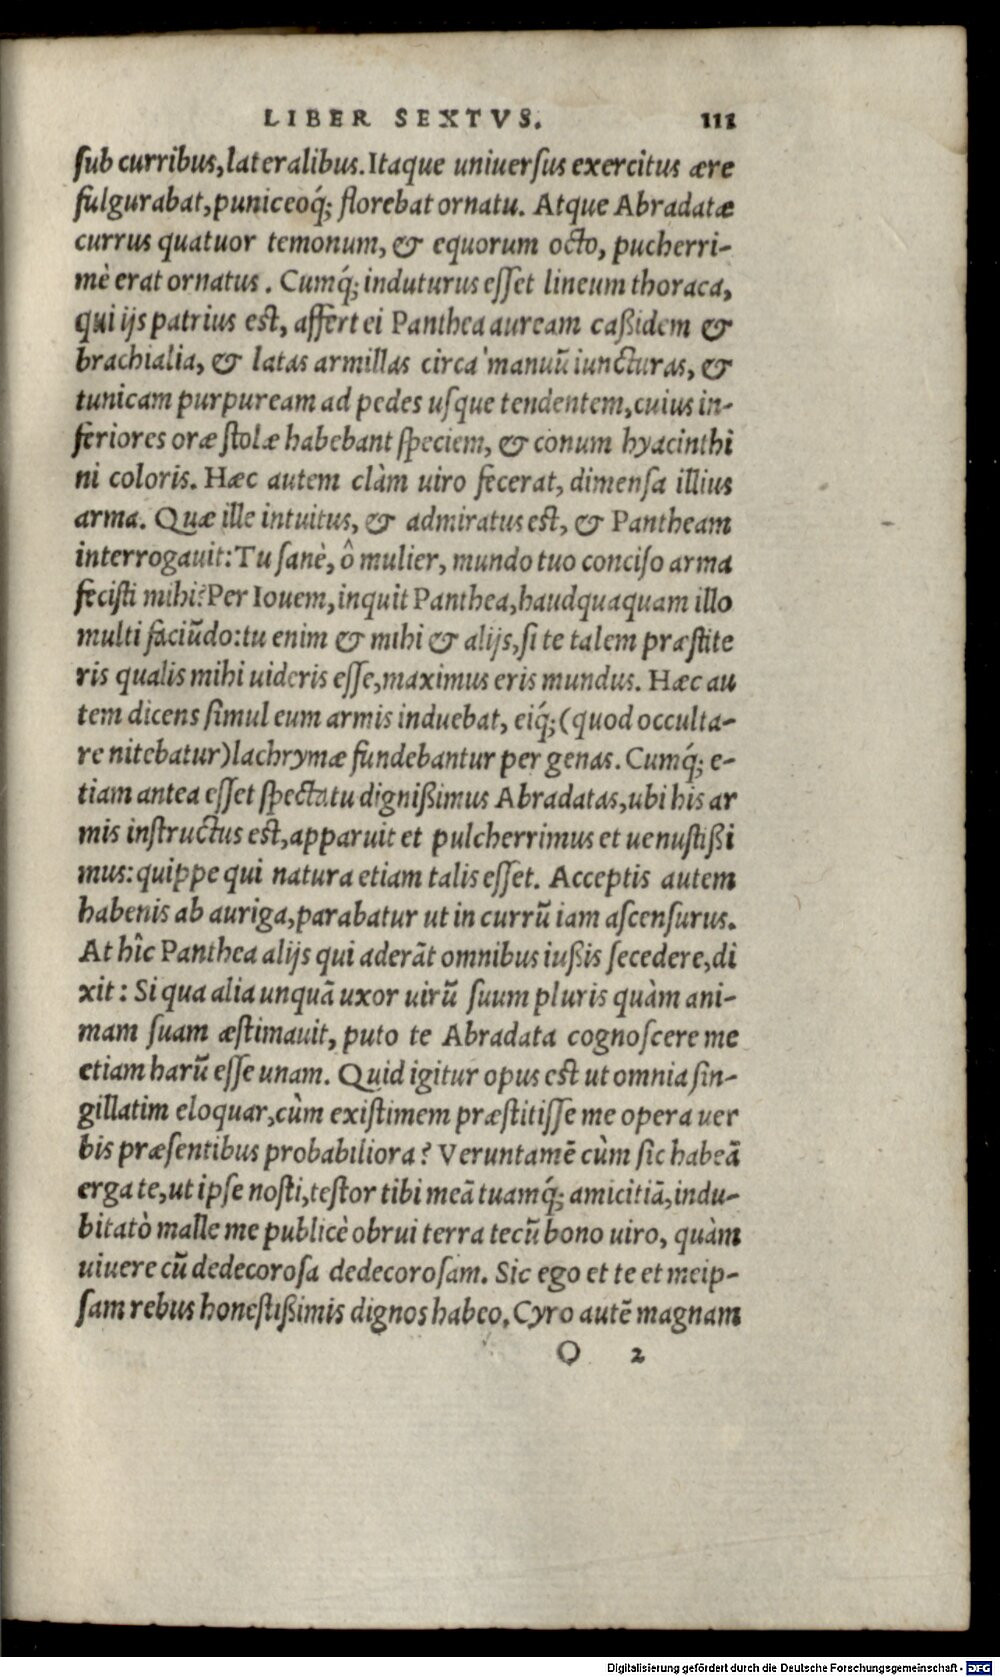 LIBER SEXTVS. 111
sub curribus, lateralibus. Itaque uniuersus exercitus ære
fulgurabat, puniceoq́; florebat ornatu. Atque Abradatæ
currus quatuor temonum, & equorum octo, pucherri-
mè erat ornatus. Cumq́; induturus esset lineum thoraca,
qui ijs patrius est, affert ei Panthea auream caßidem &
brachialia, & latas armillas circa manuũ iuncturas, &
tunicam purpuream ad pedes usque tendentem, cuius in-
feriores oræ stolæ habebant speciem, & conum hyacinthi
ni coloris. Hæc autem clàm uiro fecerat, dimensa illius
arma. Quæ ille intuitus, & admiratus est, & Pantheam
interrogauit: Tu sanè, ô mulier, mundo tuo conciso arma
fecisti mihi? Per Iouem, inquit Panthea, haudquaquam illo
multi faciũdo: tu enim & mihi & alijs, si te talem præstite
ris qualis mihi uideris esse, maximus eris mundus. Hæc au
tem dicens simul eum armis induebat, eiq́; (quod occulta-
re nitebatur) lachrymæ fundebantur per genas. Cumq́; e-
tiam antea esset spectatu dignißimus Abradatas, ubi his ar
mis instructus est, apparuit et pulcherrimus et uenustißi
mus: quippe qui natura etiam talis esset. Acceptis autem
habenis ab auriga, parabatur ut in currũ iam ascensurus.
At hîc Panthea alijs qui aderãt omnibus iußis secedere, di
xit: Si qua alia unquã uxor uirũ suum pluris quàm ani-
mam suam æstimauit, puto te Abradata cognoscere me
etiam harũ esse unam. Quid igitur opus est ut omnia sin-
gillatim eloquar, cùm existimem præstitisse me opera uer
bis præsentibus probabiliora? Veruntamẽ cùm sic habeã
erga te, ut ipse nosti, testor tibi meã tuamq́; amicitiã, indu-
bitatò malle me publicè obrui terra tecũ bono uiro, quàm
uiuere cũ dedecorosa dedecorosam. Sic ego et te et meip-
sam rebus honestißimis dignos habeo. Cyro autẽ magnam
O 2
Digitalisierung gefördert durch die Deutsche Forschungsgemeinschaft - DFG